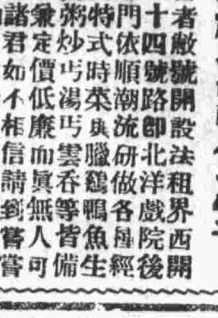 者敝號開設法租界西開
十四號路即北洋戲院後
門依順潮流研做各種經
特式時菜與臘鷄鴨魚生
粥炒丐湯丐雲吞等皆備
兼定價低廉而眞無人可
諸君如不相信請到嘗嘗